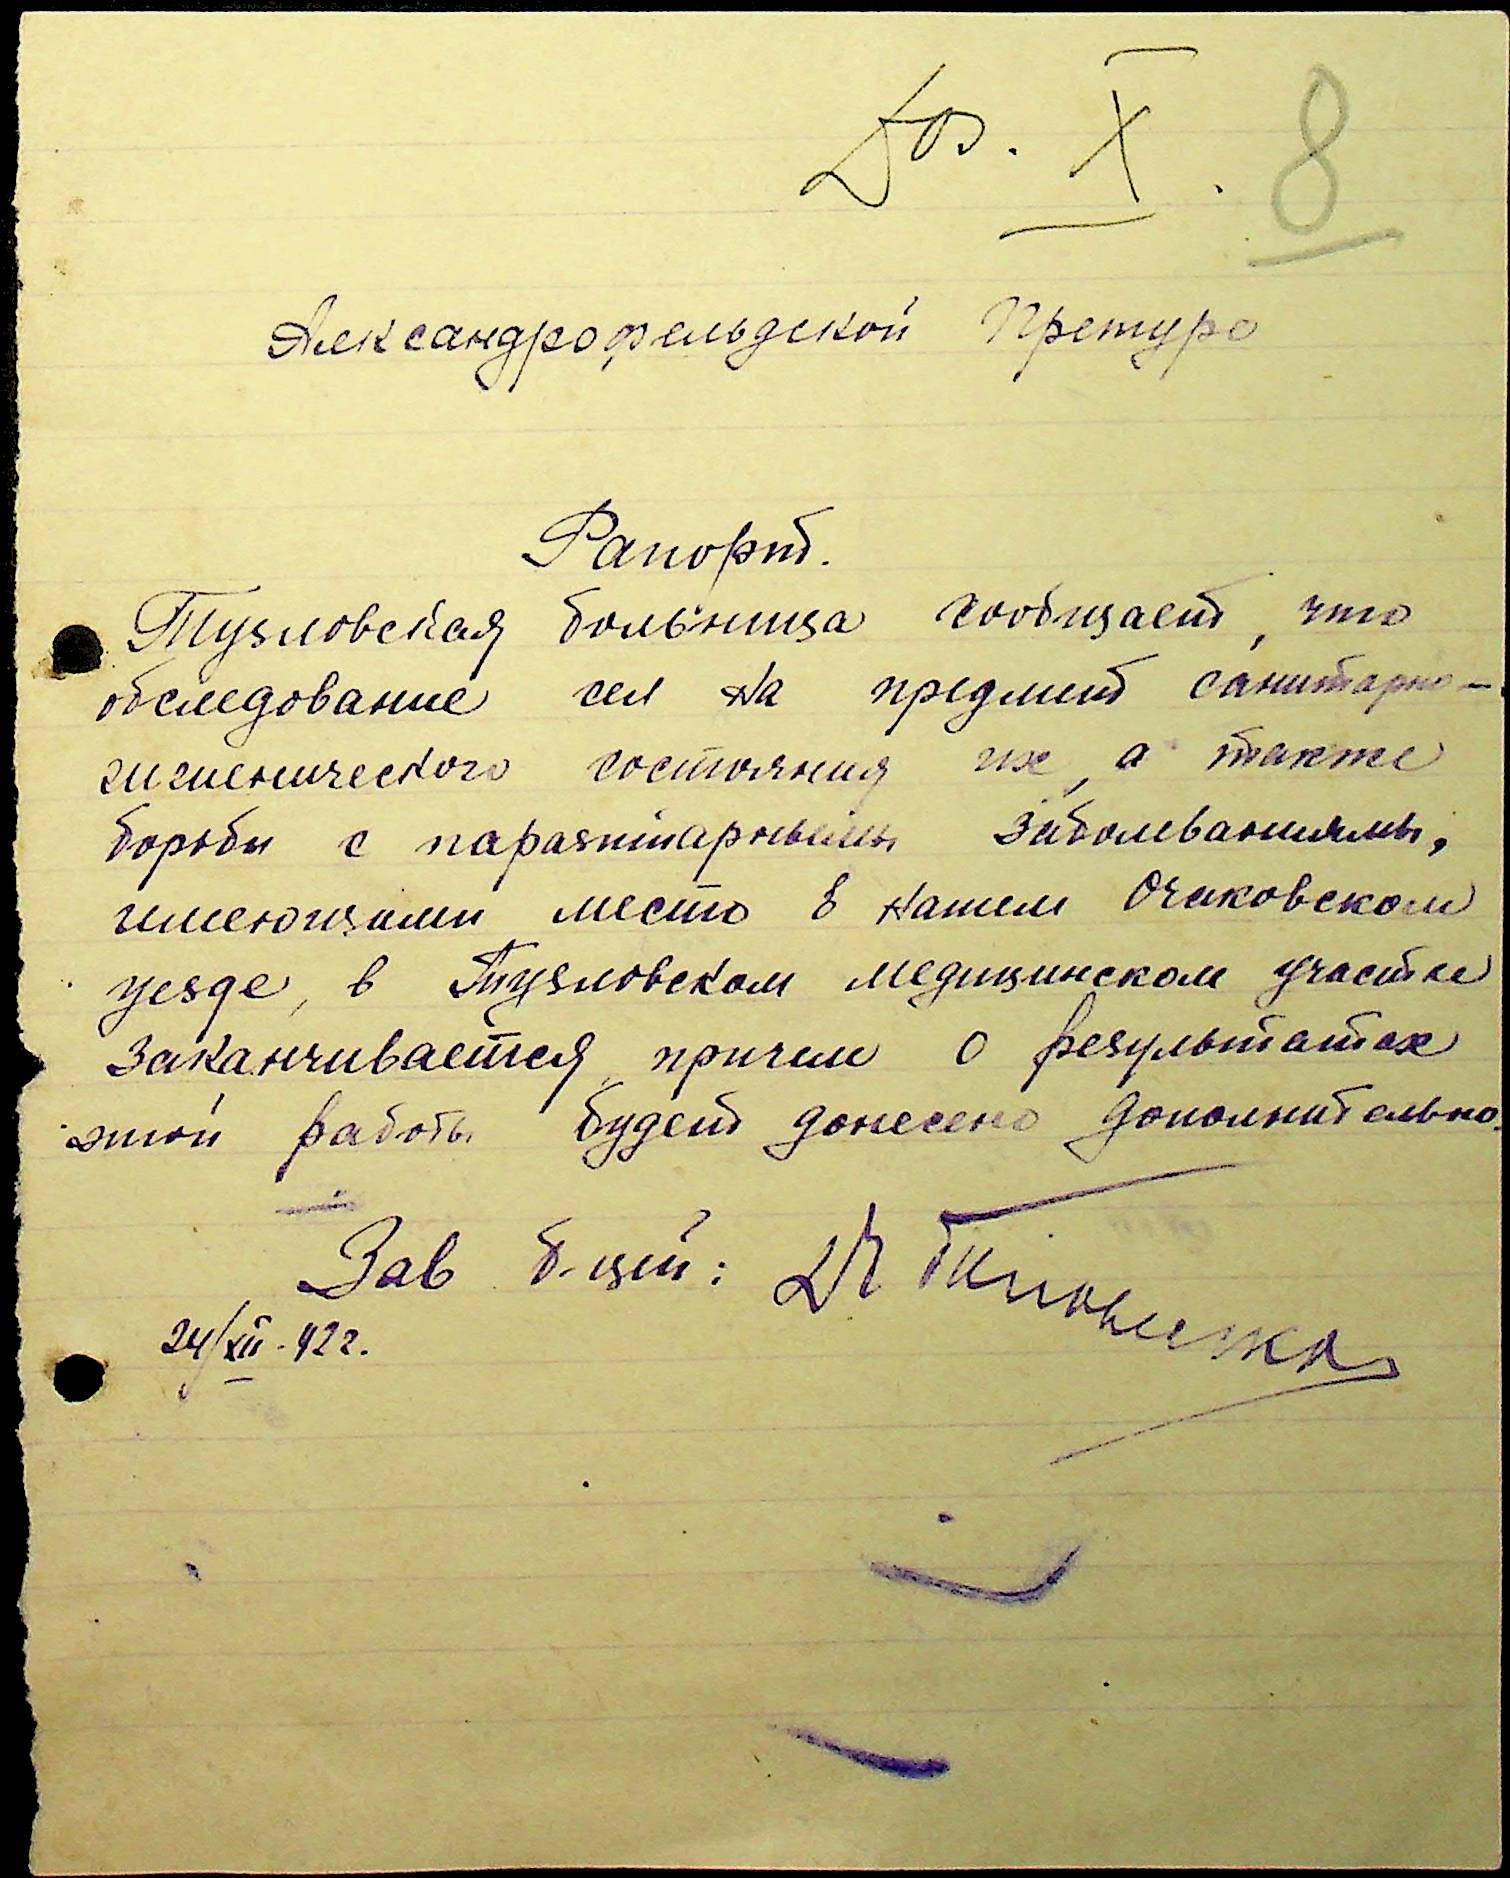 Dos. X. 8
Александрофельдской Претуре
Рапорт.
Тузловская больница сообщает, что
обследование сел на предмет санитарно-
гигиенического состояния их, а также
борьбы с паразитарными заболеваниями,
имеющими место в нашем Очаковском
уезде, в Тузловском медицинском участке
заканчивается, причем о результатах
этой работы будет донесено дополнительно.
Зав б-цей:
24/XII-42г.